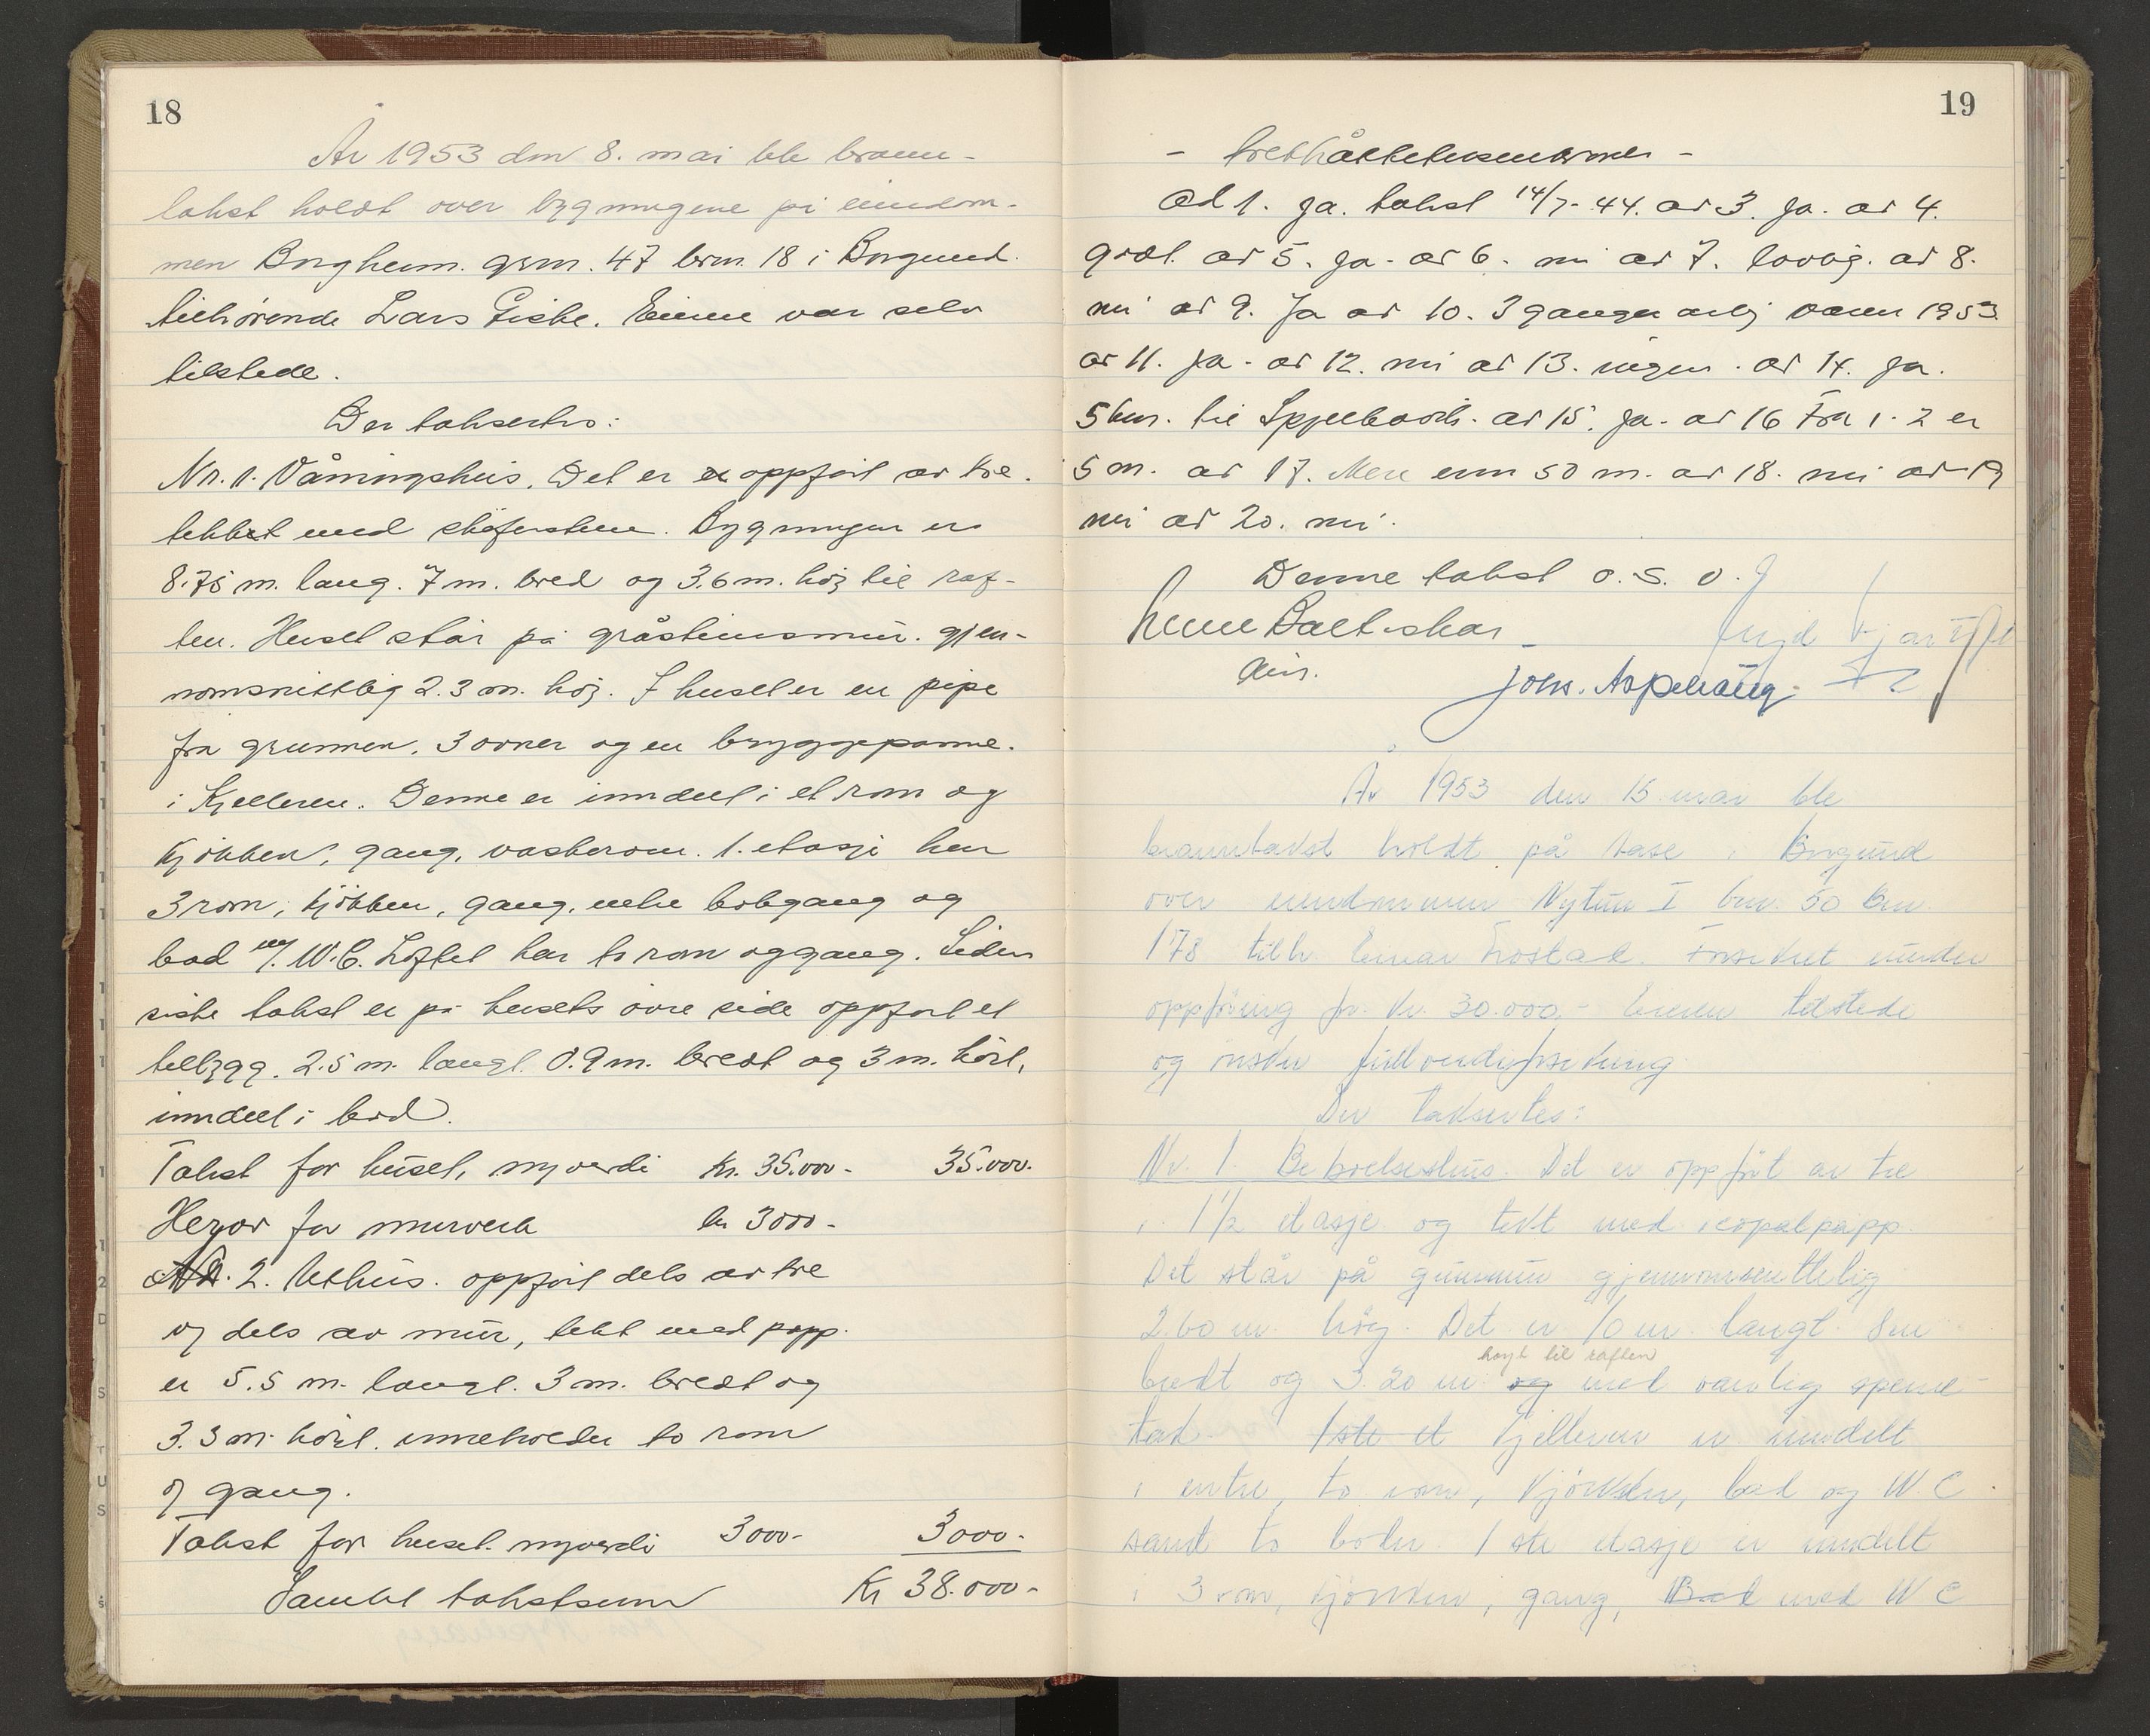 18
År 1953 den 8. mai ble brann-
takst holdt over bygningene på eiendom-
men Borgheim. grn. 47 brn. 18 i Borgund.
tilhørende Lars Giske. Eieren var selv
tilstede.
Der taksertes:
Nr. 1. Våningshus. Det er oppført av tre.
tekket med skiferstein. Bygningen er
8.75 m. lang. 7 m. bred og 3.6 m. høj til raf-
ten. Huset står på gråsteinsmur. gjen-
nomsnittlig 2.3 m. høj. I huset er en pipe
fra grunnen. 3 ovner og en bryggepanne.
i Kjelleren. Denne er inndelt i et rom og
kjøkken, gang, vaskerom. 1. etasje har
3 rom, kjøkken, gang, bakgang og
bad m/. W.C. Loftet har to rom og gang. Siden
siste takst er på husets øvre side oppført et
tilbygg. 2.5 m. langt. 0.9 m. bredt og 3 m. høit,
inndelt i bod.
Takst for huset, nyverdi Kr. 35.000.- 35.000.
Herav for murverk kr 3000-
2. Uthus. oppført dels av tre
og dels av mur, tekt med papp.
er 5.5 m. langt. 3 m. bredt og
3.3 m. høit. inneholder to rom
og gang.
Takst for huset. nyverdi 3000- 3000-
Samlet takstsum Kr 38.000-
19
-
Ad 1. Ja. takst 14/7-44. ad 3. Ja. ad 4.
godt. ad 5. Ja. ad 6. nei ad 7. ad 8.
nei ad 9. Ja ad 10. 3 ganger årlig 1953
ad 11. Ja. ad 12. nei ad 13. ingen. ad 14. Ja.
5 km. til Spjelkavik. ad 15. Ja. ad 16 Fra 1-2 er
5 m. ad 17. Mere enn 50 m. ad 18. nei ad 19
nei ad 20. nei.
Denne takst o. s. v.
Johs. Aspehaug.
År 1953 den 15 mai ble
branntakst holdt på Aase i Borgund
over eiendommen Nytun I bnr. 50 bnr.
178 tilh. Einar Frostad. Forsikret under
oppføring for kr. 30.000,- Eieren tilstede
og ønsker fullverdiforsikring.
Der taksertes:
Nr. 1 Beboelseshus. Det er oppført av tre
i 1 1/2 etasje og tekt med icopalpapp.
Det står på grunnmur gjennomsnittelig
2.60 m høg. Det er 10 m. langt 8 m
høgt til raften
bredt og 3.20 m og med vanlig sperre-
tak. 1ste et Kjelleren er inndelt
i entre, to rom, kjøkken, bad og W.C.
samt to boder. 1ste etasje er inndelt
i 3 rom, kjøkken, gang, Bad med W C